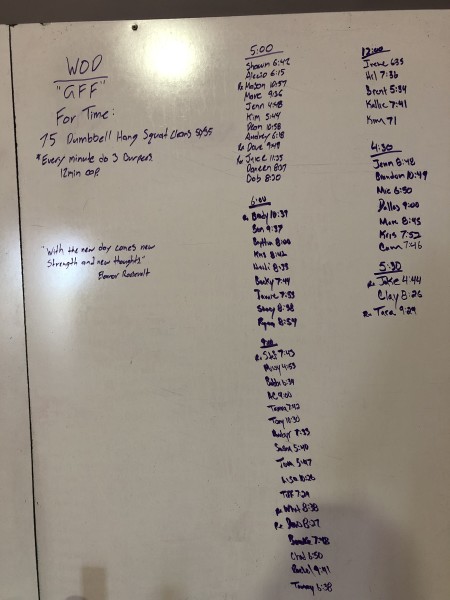 WOD
"GFF"
For Time:
75 Dumbbell Hang Squat Cleans
*Every minute do 3 Burpees
12min cap
"With the new day comes new
Strength and new thoughts"
Eleanor Roosevelt
5:00
Shawn 6:42
Alexio 6:15
Rx Mason 10:57
Marc 9:36
Jenn 4:48
Kim 5:44
Dean 10:58
Audrey 6:18
Rx Dave 9:49
Rx Joyce 11:35
Doreen 8:27
Deb 8:20
6:00
Rx Brady 10:39
Ben 9:37
8:00
Kris 8:42
8:35
Becky 7:44
7:53
8:38
Ryan 8:54
9:00
7:43
4:53
9:00
Tanna 7:42
Tony 11:30
5:40
Tom 5:47
Lisa 10:26
Tiff 7:24
8:38
8:27
7:48
Chad 6:50
Rachel 9:41
Tammy 6:38
12:00
Irene 6:35
Hil 7:36
Brent 5:34
Kallie 7:41
Kim 71
4:30
Jenn 8:48
Brandon 10:49
Mic 6:50
Dallas 9:00
Max 8:45
Kris 7:52
7:46
5:30
Rx Jake 4:44
Clay 8:26
Rx Tara 9:29